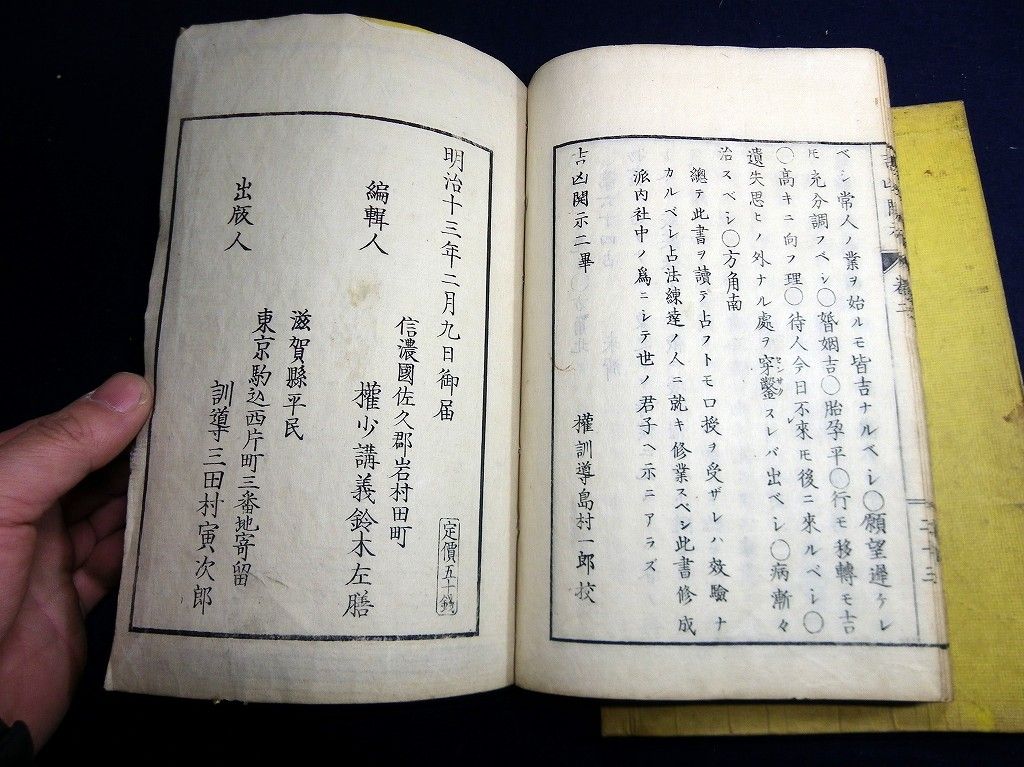 ベシ常人ノ業ヲ始ルモ皆吉ナルベシ〇願望遲ケレ
𪜈充分調フベシ〇婚姻吉〇胎孕平〇行モ移轉モ吉
〇高キニ向フ理〇待人今日不來レ𪜈後ニ來ルベシ〇
遺失思ヒノ外ナル處ヲ穿鑿センサクスレバ出ベシ〇病漸々
治スベシ〇方角南
總テ此書ヲ讀テ占フトモ口授ヲ受ザレハ效驗ナ
カルベシ占法練達ノ人ニ就キ修業スベシ此書修成
派内社中ノ爲ニシテ世ノ君子ヘ示ニアラズ
權訓導島村一郎校
吉凶開示二畢
卷二
二十三
明治十三年二月九日御届
定價五十錢
信濃國佐久郡岩村田町
編輯人
權少講義鈴木左膳
滋賀縣平民
東京駒込西片町三番地寄留
出版人
訓導三田村寅次郎